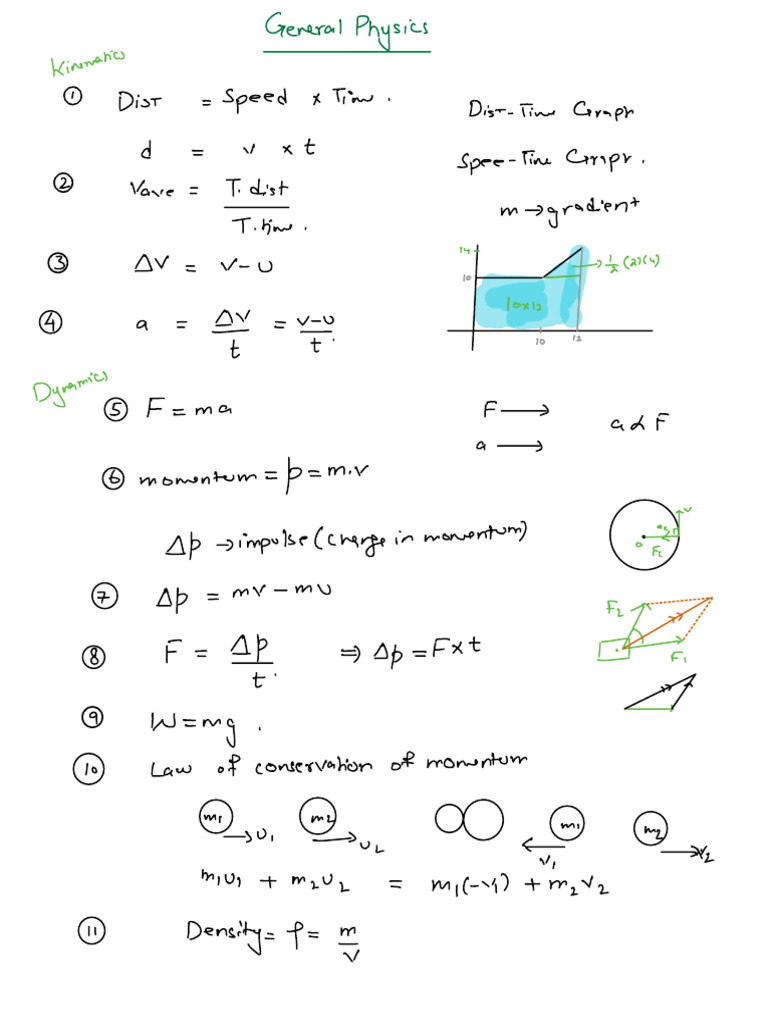 General Physics
Kinematics
① Dist = Speed x Time.
d = v x t
Dist-Time Graph
Spee-Time Graph.
m → gradient
② Vave = T. dist / T. time.
③ Δv = v-u
14
10
10x12
→ 1/2 (2)(4)
10 12
④ a = Δv/t = v-u/t.
Dynamics
⑤ F = ma
F →
a →
a α F
⑥ momentum = p = m.v
Δp → impulse (change in momentum)
v
o
Fc
⑦ Δp = mv - mu
F2
F1
⑧ F = Δp/t. ⇒ Δp = F x t
⑨ W = mg.
⑩ Law of conservation of momentum
m1 → u1 m2 → u2 m1 ← v1 m2 → v2
m1u1 + m2u2 = m1(-v1) + m2v2
⑪ Density = ρ = m/v